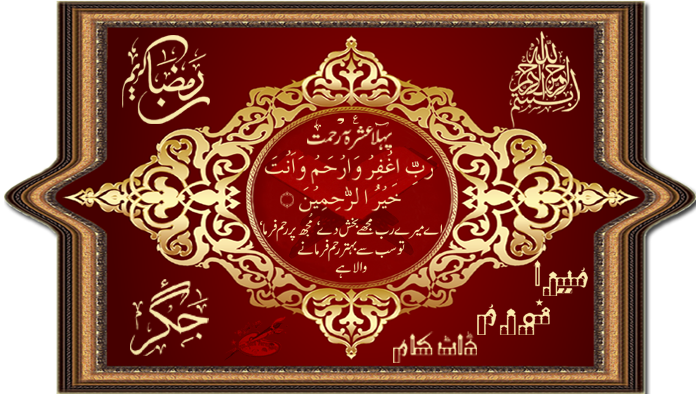 رمضان کریم
بسم الله الرحمن الرحيم
پہلا عشرۂ رحمت
رَبِّ اغْفِرْ وَارْحَمْ وَاَنْتَ
خَيْرُ الرَّحِمِيْنَ
اے میرے رب مجھے بخش دے مجھ پر رحم فرما
تو سب سے بہتر رحم فرمانے
والا ہے
میرا
فورم
ڈاٹ کام
جگر